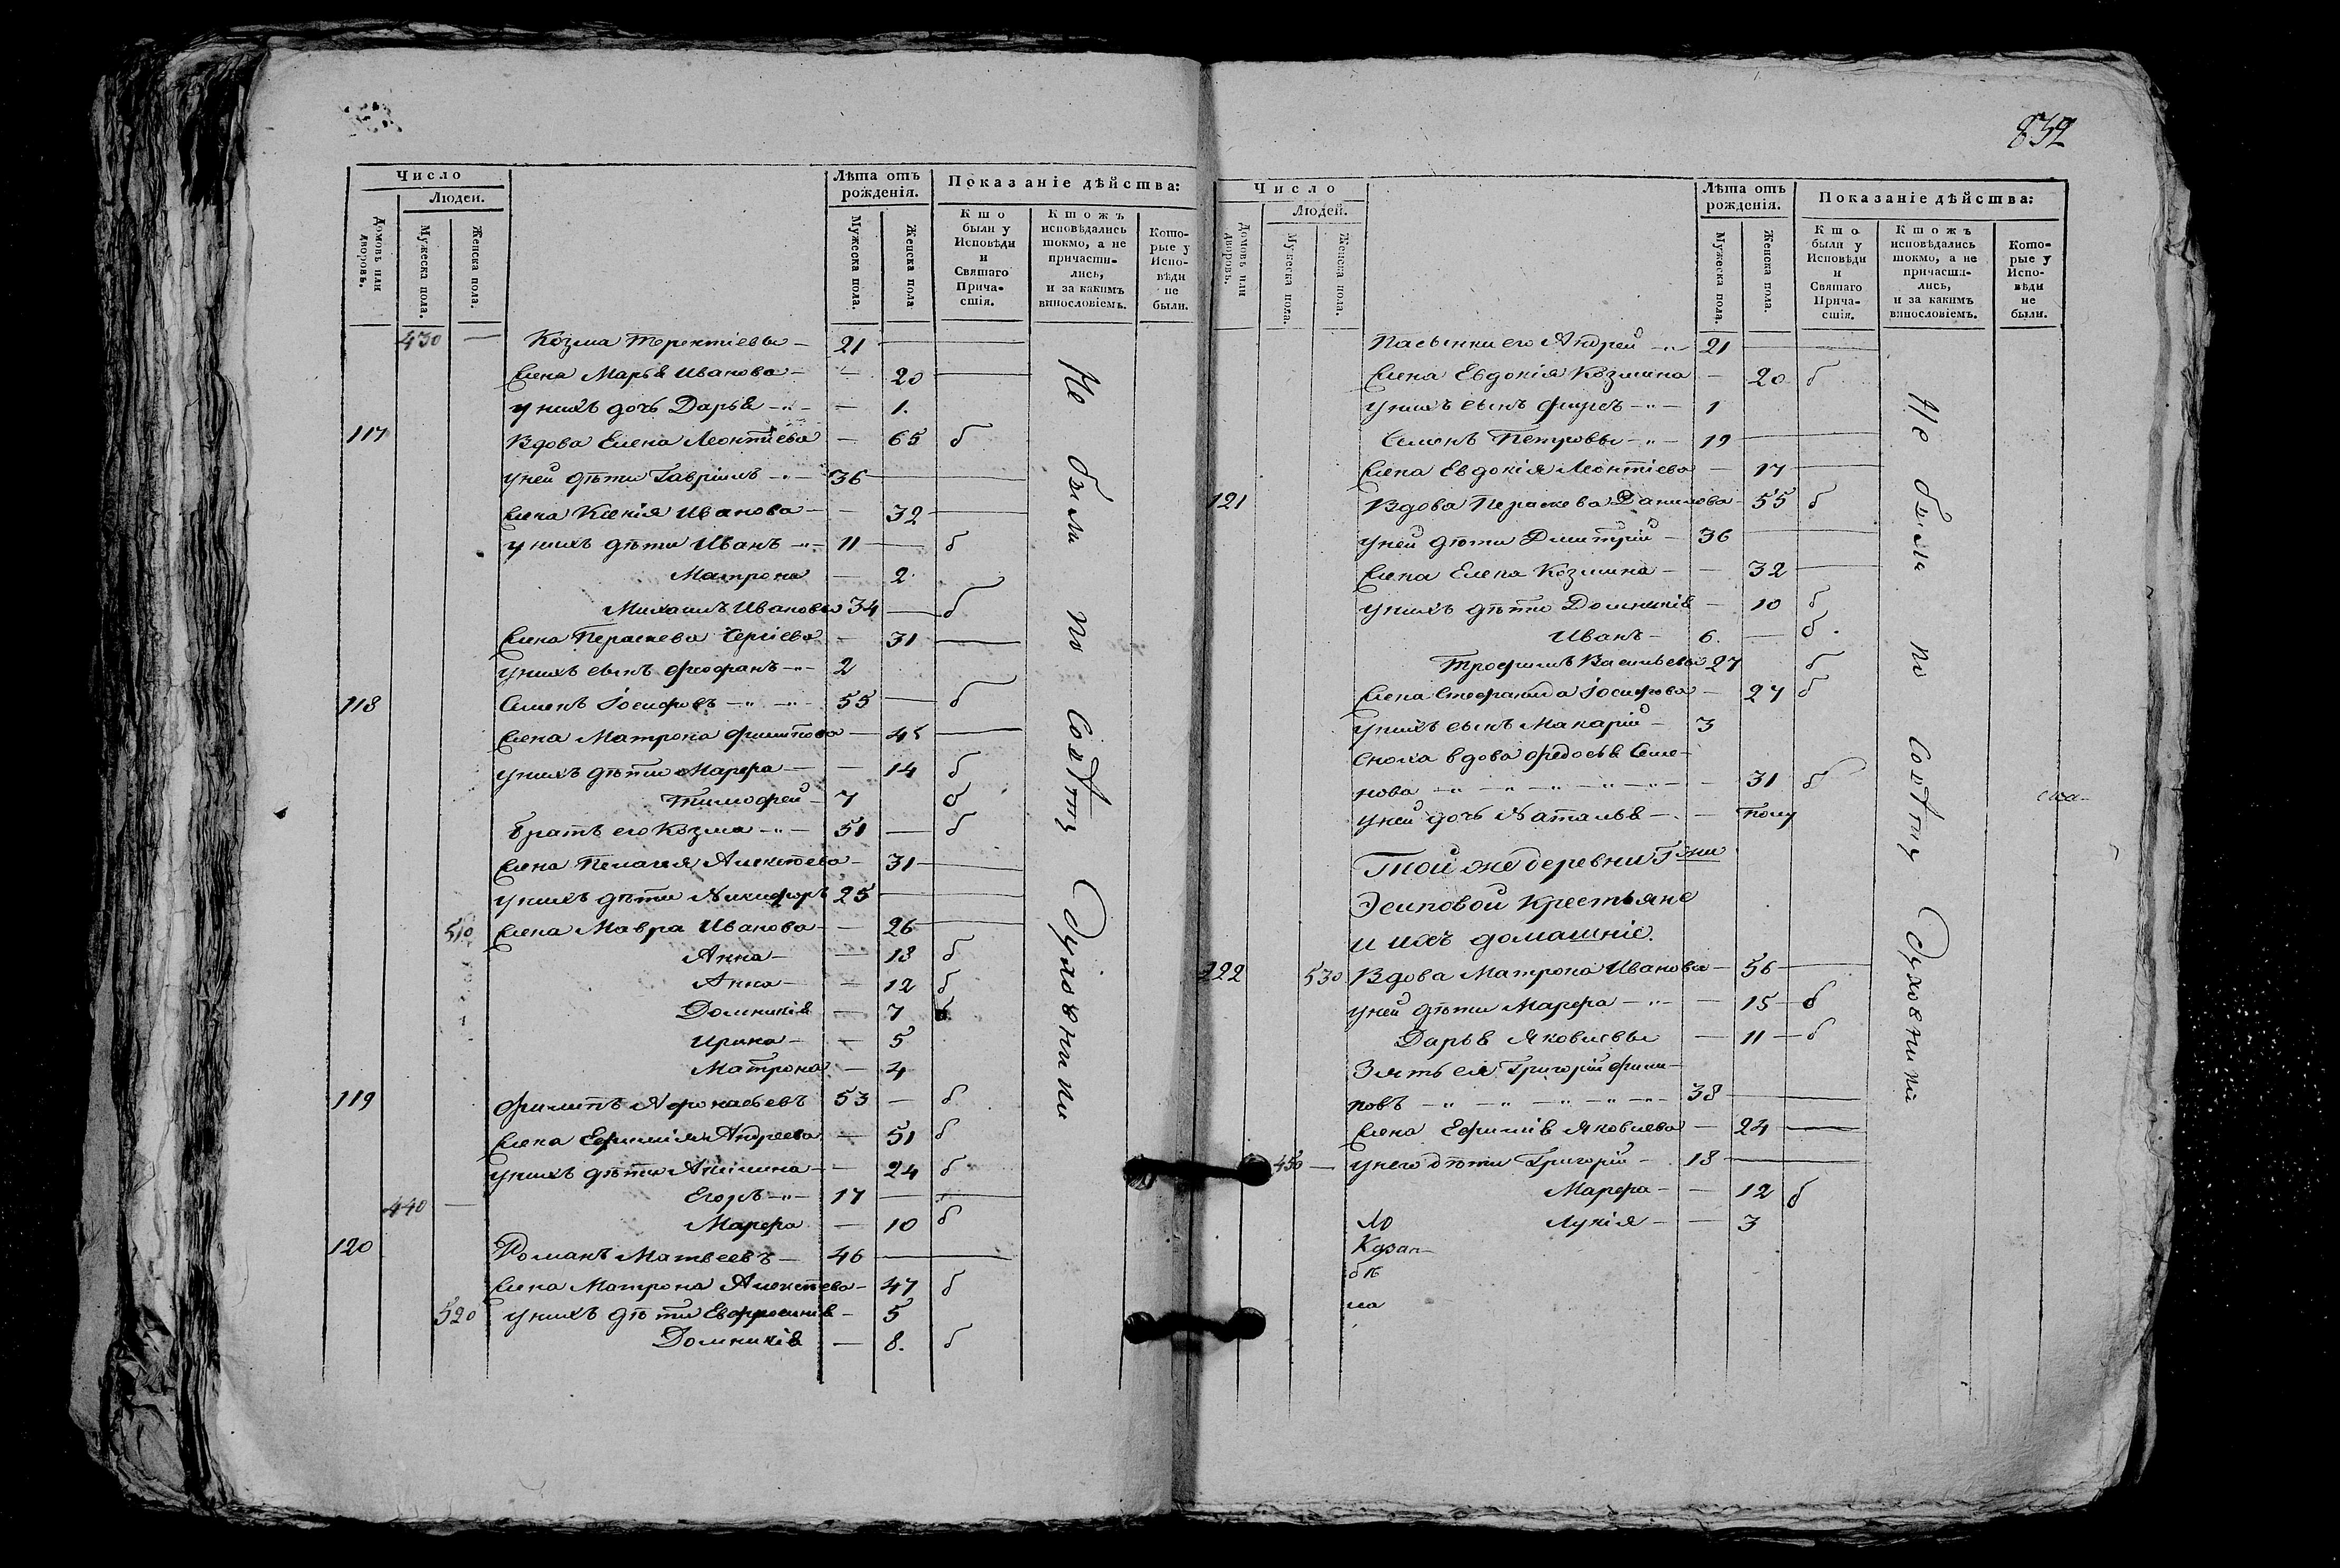 832
Число
Людей.
Домовъ или дворовъ.
Мужеска пола.
Женска пола.
Лѣта отъ рожденія.
Мужеска пола.
Женска пола
Показаніе дѣйства:
Кто были у Исповѣди и Святаго Причастія.
Ктожъ исповѣдались токмо, а не причастились, и за какимъ винословіемъ.
Которые у Исповѣди не были.
430 — Козма Терентіевы — 21
Жена Марья Иванова — 20
у нихъ дочь Дарья — 1.
117 Вдова Елена Леонтіева — 65 б
у ней дѣти Гавріилъ — 36
Жена Ксенія Иванова — 32
у нихъ дѣти Иванъ — 11 — б
Матрона — 2
Михаилъ Ивановы 34 — б
Жена Параскева Сергіева — 31
у нихъ сынъ Феофанъ — 2
118 Семенъ Іосифовъ — 55 — б
Жена Матрона Филипова — 45
у нихъ дѣти Марфа — 14 б
Тимофей — 7 б
братъ его Козма — 51 — б
Жена Пелагея Алексѣева — 31
у нихъ дѣти Никифоръ 25
510 Жена Мавра Иванова — 26
Анна — 18 б
Анна — 12 б
Домникія — 7 б
Ирина — 5
Матрона — 4
119 Филипъ Афонасьевъ 53 — б
Жена Ефимія Андреева — 51 б
у нихъ дѣти Акилина — 24 б
440 — Егоръ — 17
Марфа — 10 б
120 Романъ Матвеевъ — 46
Жена Матрона Алексѣева — 47 б
520 у нихъ дѣти Евфросинія — 5
Домникія — 8. б
Не были по совѣту духовники
Число
Людей.
Домовъ или дворовъ.
Мужеска пола.
Женска пола.
Лѣта отъ рожденія.
Мужеска пола.
Женска пола.
Показаніе дѣйства:
Кто были у Исповѣди и Святаго Причастія.
Ктожъ исповѣдались токмо, а не причастились, и за какимъ винословіемъ.
Которые у Исповѣди не были.
Пасынки его Андрей — 21
Жена Евдокія Козмина — 20 б
у нихъ сынъ — 1
Семенъ Петровы — 19
Жена Евдокія Леонтіева — 17
121 Вдова Параскева Данилова — 55 б
у ней дѣти Димитрій — 36
Жена Елена Козмина — 32
у нихъ дѣти Домникія — 10 б
Иванъ — 6. — б.
Трофимъ Васильевы 27 б
Жена Стефанида Іосифова — 27 б
у нихъ сынъ Макарій — 3
Сноха вдова Федосья Семе-
нова — 31 б
у ней дочь Наталья — полу
Той же деревни Гжи
Эсиповой крестьяне
и ихъ домашніе.
122 530 Вдова Матрона Иванова — 56
у ней дѣти Марфа — 15 — б
Дарья Яковлевы — 11 — б
Зять ея Григорій Фили-
повъ — 38
Жена Ефимія Яковлева — 24
450 — у него дѣти Григорій — 18
Марфа — 12 б
Лукія — 3
Казан-
ла
Не были по совѣту духовники